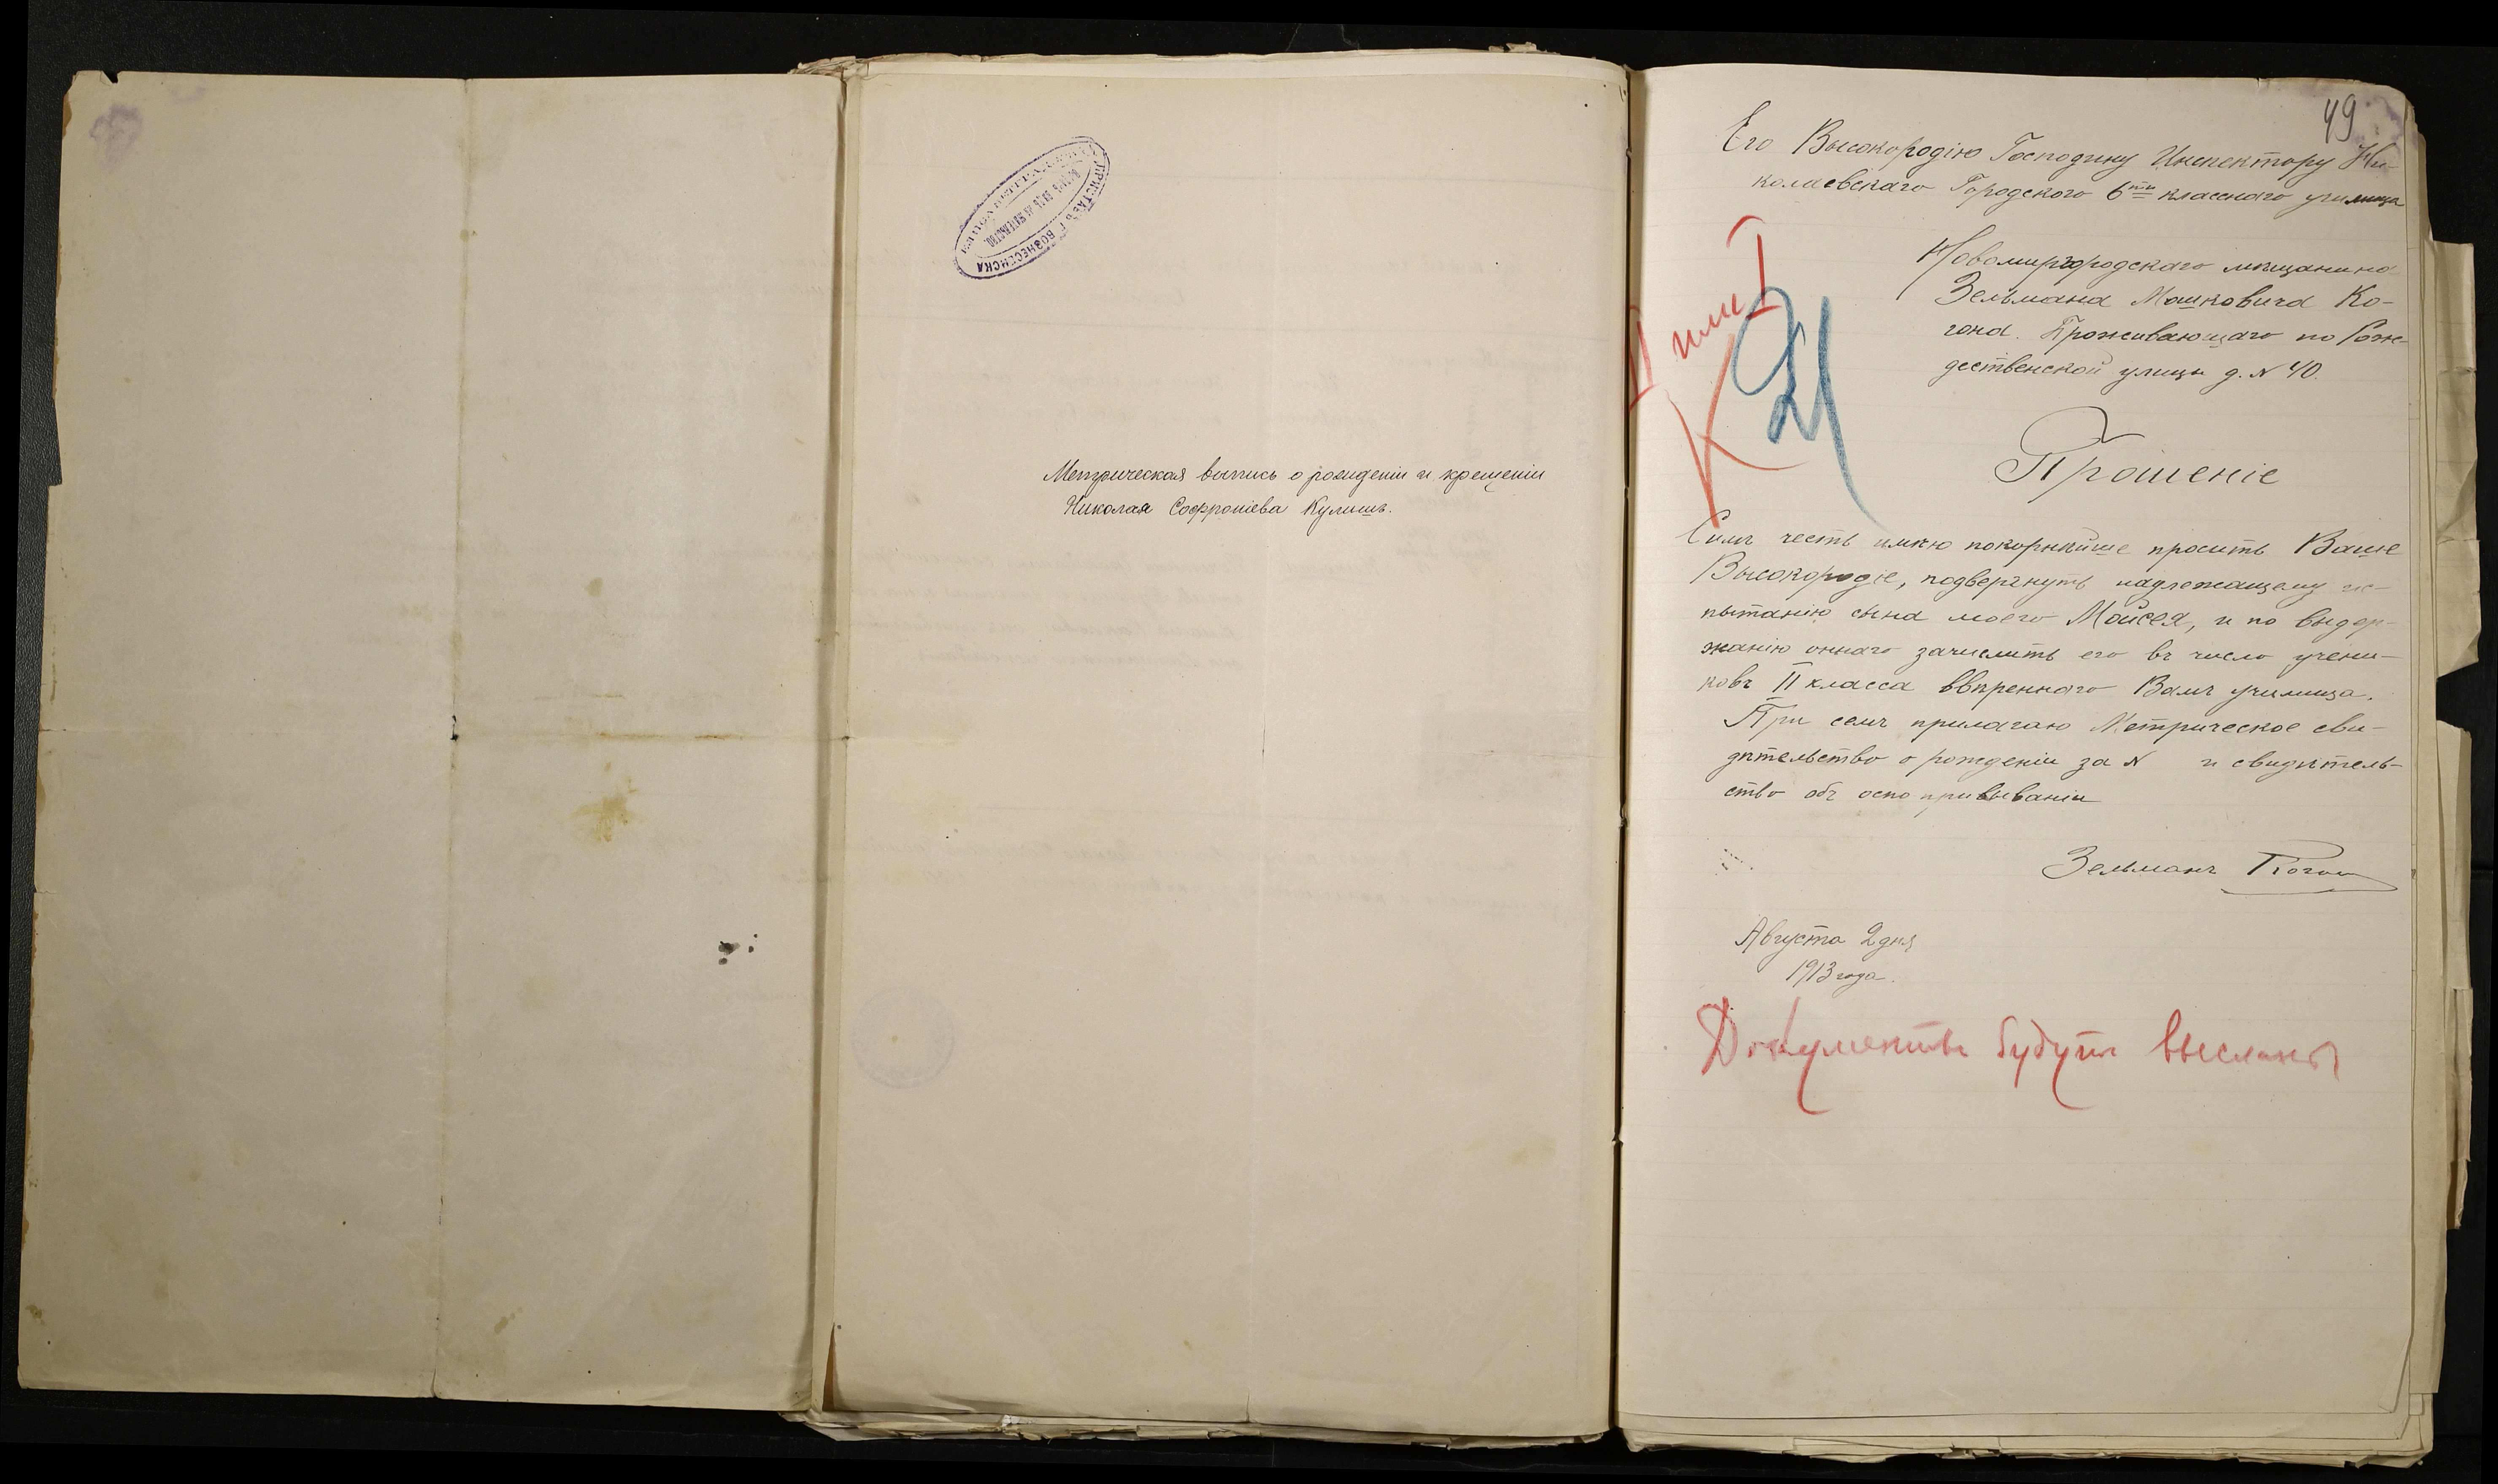 ПРИСТАВЪ Г. ВОЗНЕСЕНСКА
Метрическая выпись о рожденіи и крещеніи
Николая Софроніева Кулишъ.
49
Его Высокородію Господину Инспектору Ни-
колаевскаго Городского 6ти класснаго училища
Новомиргородскаго мѣщанина
Зельмана Мошковича Ко-
гона. Проживающаго по Рож-
дественской улицѣ д. № 40.
II или I
К
21
Прошеніе
Симъ честь имѣю покорнѣйше просить Ваше
Высокородіе, подвергнуть надлежащему ис-
пытанію сына моего Мойсея, и по выдер-
жанію оннаго зачислить его въ число учени-
ковъ II класса ввѣреннаго Вамъ училища.
При семъ прилагаю Метрическое сви-
дѣтельство о рожденіи за № и свидѣтель-
ство объ оспопрививаніи
Зельманъ Когон
Августа 2 дня
1913 года.
Документы будутъ высланы